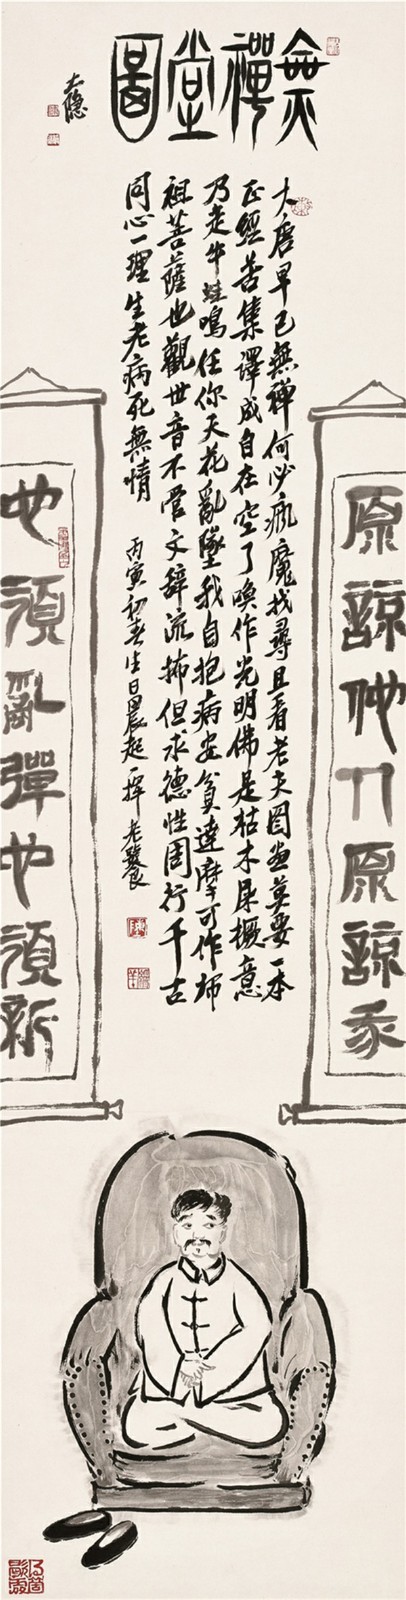 無禪堂圖
大唐早已無禅何必瘋魔找尋且看老夫圖畫莫要一本
正經苦集譯成自在空了喚作光明佛是枯木屎橛意
乃走牛蛙鳴任你天花亂墜我自抱病安貧達摩可作師
祖菩薩也觀世音不管文辭流拂但求德性周行千古
同心一理生老病死無情 丙寅初春生日晨起一揮 老饕
原諒他人原諒我
也須亂彈也須新